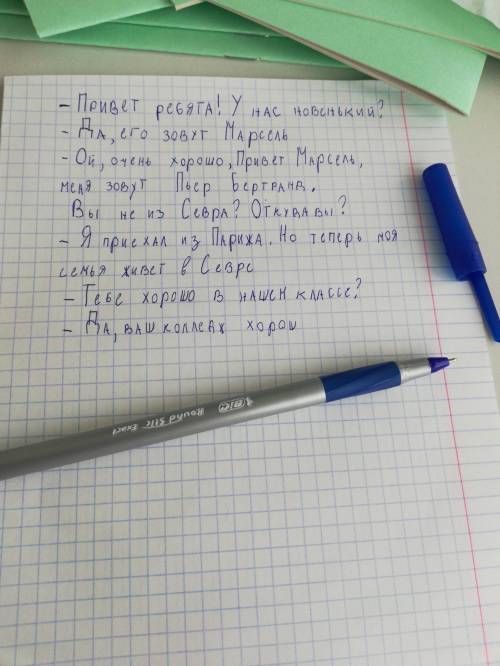 - Привет ребята! У нас новенький?
- Да, его зовут Марсель
- Ой, очень хорошо, Привет Марсель,
меня зовут Пьер Бертранд.
Вы не из Севра? Откуда вы?
- Я приехал из Парижа. Но теперь моя
семья живет в Севре
- Тебе хорошо в нашем классе?
- Да, ваш колледж хорош
BIC Round Stic Exact